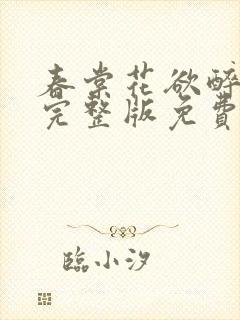 春棠花欲醉
完整版免費
臨小汐